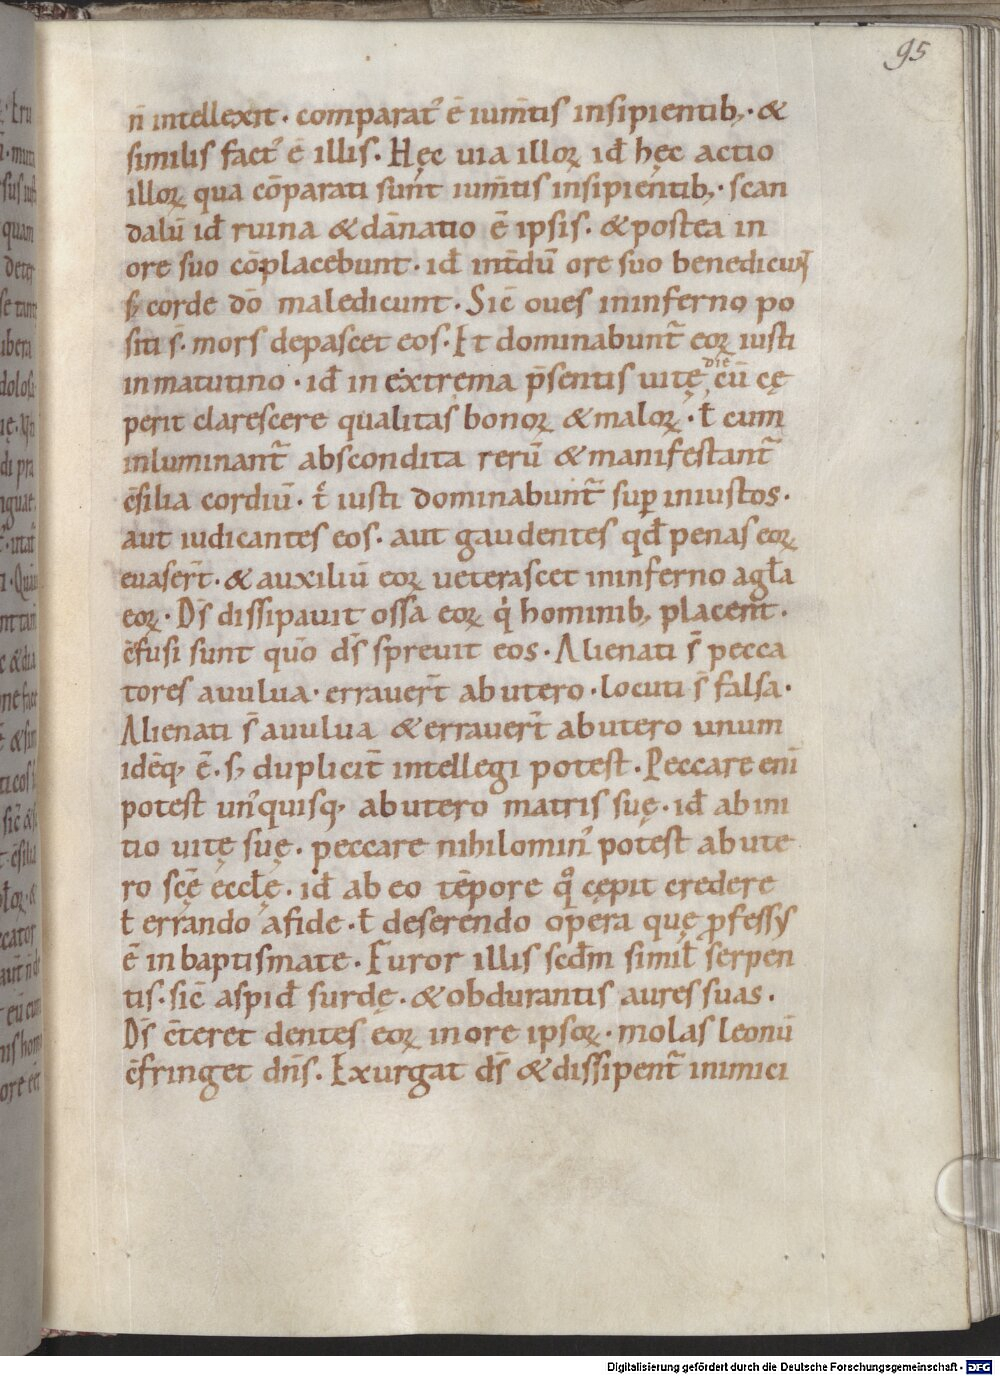 95
n̄ intellexit · comparat᾿ ē ium̄tis insipientib; · &
similis fact᾿ ē illis. Hęc uia illoꝝ id̄ hęc actio
illoꝝ qua cōparati sunt ium̄tis insipientib; · scan
dalū id̄ ruina & dānatio ē ipsis. & postea in
ore suo cōplacebunt · id̄ int̄dū ore suo benedicunt
s; corde dō maledicunt. Sic̄ oues ininferno po
siti s̄. mors depascet eos. Et dominabunt̄ eoꝝ iusti
in matutino · id̄ in extrema p̄sentis uitę, diē cū cę
perit clarescere qualitas bonoꝝ & maloꝝ. ł cum
inluminant̄ abscondita rerū & manifestant̄
c̄silia cordiū. t̄ iusti dominabunt̄ suꝑ iniustos.
aut iudicantes eos. aut gaudentes qd̄ penas eoꝝ
euaser̄t. & auxiliū eoꝝ ueterascet ininferno agła
eoꝝ. Ds̄ dissipauit ossa eoꝝ q̇ hominib; placent.
c̄fusi sunt qūo ds̄ spreuit eos. Alienati s̄ pecca
tores auulua. errauer̄t ab utero. locuti s̄ falsa.
Alienati s̄ auulua & errauer̄t ab utero unum
idēq; ē. s; duplicit̄ intellegi potest. Peccare eni̅
potest un᾿quisq; ab utero matris suę. id̄ ab ini
tio uitę suę. peccare nihilomin᾿ potest ab ute
ro scę̄ eccłę. id̄ ab eo tēpore qͦ cępit credere
ł errando afide. ł deserendo opera quę ꝓfessus
ē in baptismate. Furor illis scd̄m simił serpen
tis. sic̄ aspid̄ surdę. & obdurantis aures suas.
Ds̄ c̄teret dentes eoꝝ in ore ipsoꝝ. molas leonū
c̄fringet dn̄s. Exurgat ds̄ & dissipent̄ inimici
Digitalisierung gefördert durch die Deutsche Forschungsgemeinschaft - DFG